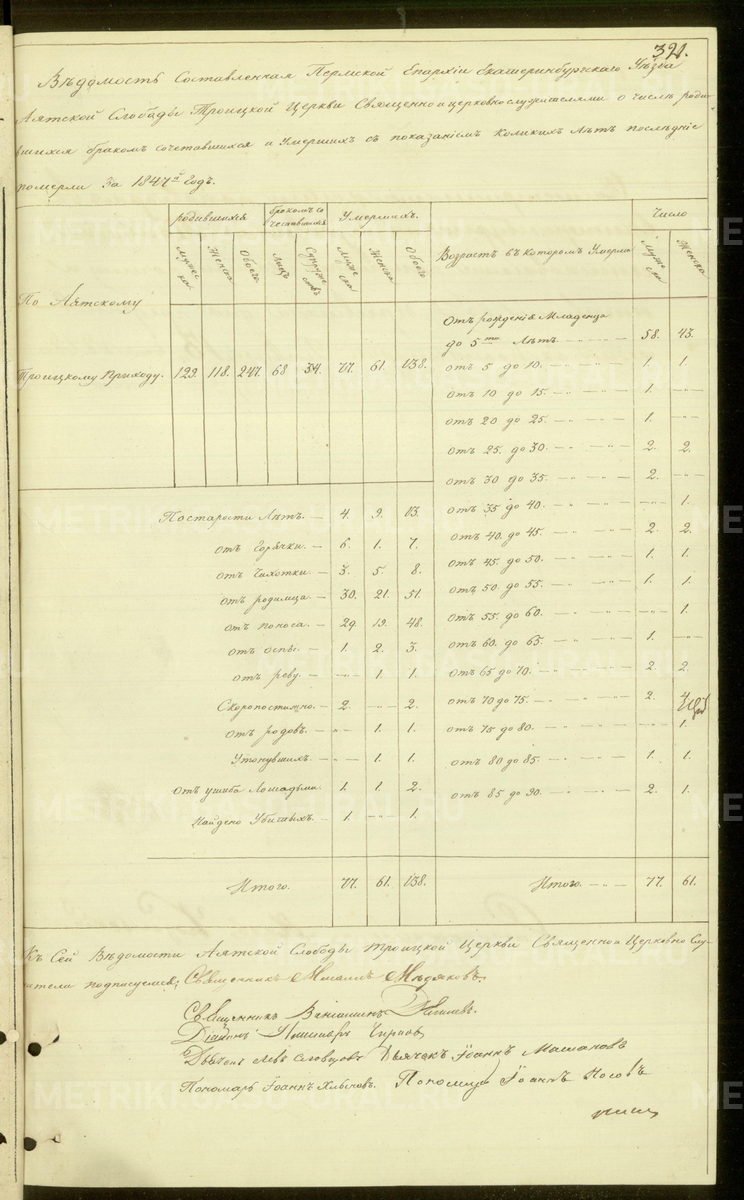 391.
Вѣдомость Составленная Пермской Епархіи Екатеринбургскаго Уѣзда
Аятской Слободы Троицкой Церкви Священноицерковнослужителями о числѣ роди-
вшихся бракомъ сочетавшихся и Умершихъ съ показаніемъ Коликихъ Лѣтъ послѣдніе
померли За 1847й Годъ.
родившихся бракомъ со Умершихъ. Число
четавшихся
Мужеска Женска Обоего Лицъ Супружествъ Мужеска Женска Обоего Возрастъ въ которомъ Умерли Мужеска Женска
По Аятскому
Троицкому Приходу. 129. 118. 247. 68 34. 77. 61. 138.
Отъ рожденія Младенца
до 5ти Лѣтъ. 58. 43.
отъ 5 до 10. 1. 1.
отъ 10 до 15. 1. — „ —
отъ 20 до 25. 1. — „ —
отъ 25. до 30. 2. 2.
отъ 30 до 35. 2. — „ —
отъ 35 до 40. — „ — 1.
отъ 40. до 45. 2. 2.
отъ 45. до 50. 1. 1.
отъ 50. до 55. 1. 1.
отъ 55. до 60. — „ — 1.
отъ 60. до 65. 1. — „ —
отъ 65 до 70. 2. 2.
отъ 70 до 75. 2. 4
отъ 75 до 80. — „ — 1.
отъ 80 до 85. 1. 1.
отъ 85 до 90. 2. 1.
Постарости Лѣтъ. — 4. 9. 13.
отъ Горячки. — 6. 1. 7.
отъ Чахотки. — 3. 5. 8.
отъ родимца. — 30. 21. 51.
отъ поноса. — 29. 19. 48.
отъ оспы. — 1. 2. 3.
отъ реву. — — „ — 1. 1.
Скоропостижно. — 2. — „ — 2.
отъ родовъ. — — „ — 1. 1.
Утонувшихъ. — — „ — 1. 1.
отъ ушиба Лошадьми. 1. 1. 2.
Найдено Убитыхъ. — 1. — „ — 1.
Итого. 77. 61. 138. Итого. — „ — 77. 61.
Къ Сей Вѣдомости Аятской Слободы Троицкой Церкви Священно и Церковно Слу-
жители подписуемся: Священникъ Михаилъ Мѣдяковъ.
Священникъ Веніаминъ
Діаконъ
Дьячекъ Левъ Словцовъ Дьячекъ Іоаннъ
Пономарь Іоаннъ Хлыновъ. Пономарь Іоаннъ Носовъ
METRIKI